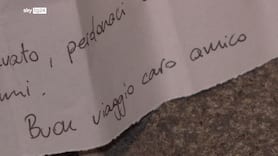 sky
tg24
vato, perdonaci
mi.
Buon viaggio caro amico